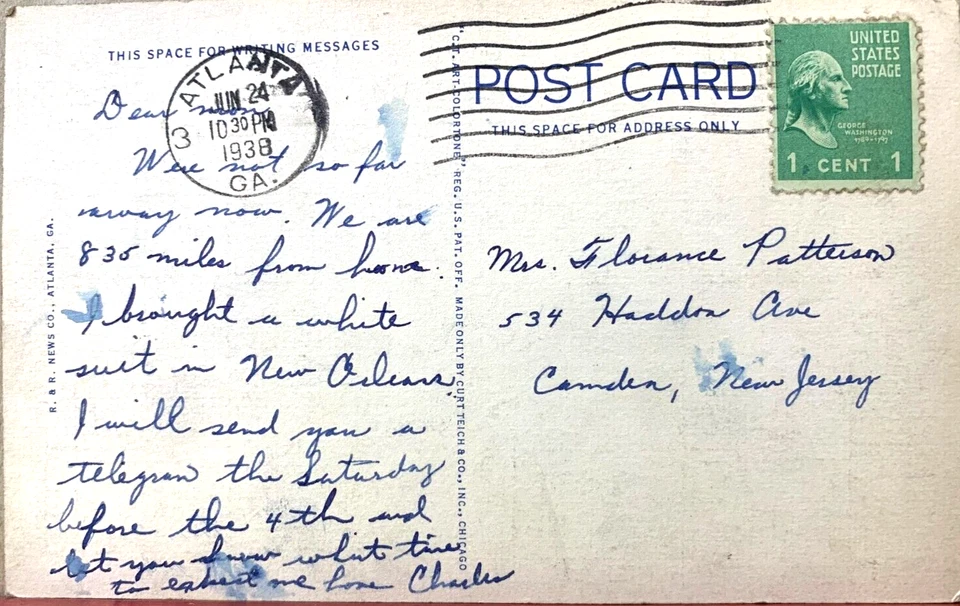 THIS SPACE FOR WRITING MESSAGES
Dear mom
Were not so far
away now. We are
835 miles from home.
I brought a white
suit in New Orleans.
I will send you a
telegram the Saturday
before the 4th and
let you know what time
to expect me home Charles
ATLANTA
JUN 24
10 30 PM
1938
GA.
3
R. & R. NEWS CO., ATLANTA, GA.
"C.T. ART-COLORTONE" REG. U.S. PAT. OFF. MADE ONLY BY CURT TEICH & CO., INC., CHICAGO
POST CARD
THIS SPACE FOR ADDRESS ONLY
UNITED
STATES
POSTAGE
GEORGE
WASHINGTON
1 CENT 1
Mrs. Florance Patterson
534 Haddon Ave
Camden, New Jersey